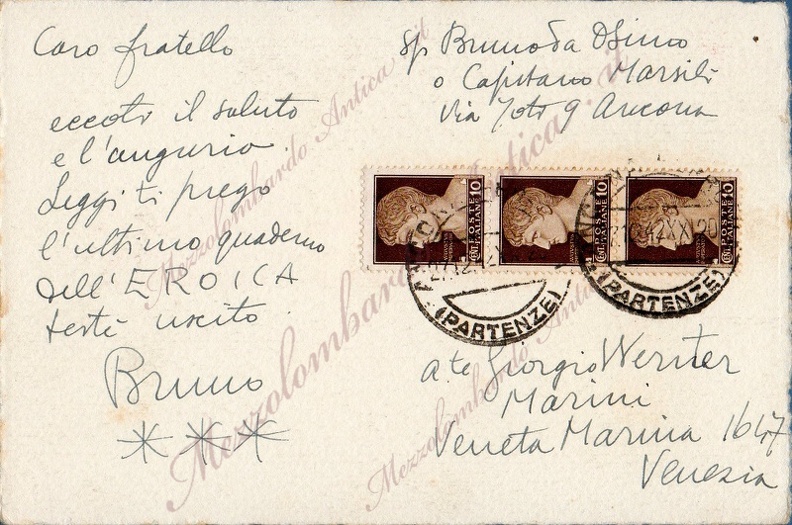 Caro fratello
eccoti il saluto
e l'augurio.
Leggi ti prego
l'ultimo quaderno
dell'EROICA
testè uscito.
Bruno
Sp Bruno da Osimo
o Capitano Marsili
Via 9 Ancona
10 POSTE ITALIANE CENT.
10 POSTE ITALIANE CENT.
10 POSTE ITALIANE CENT.
ANCONA
(PARTENZE)
42 XXI 20
(PARTENZE)
a te Giorgio Werner
Marini
Veneta Marina 1647
Venezia
Mezzolombardo Antica
Mezzolombardo Antica